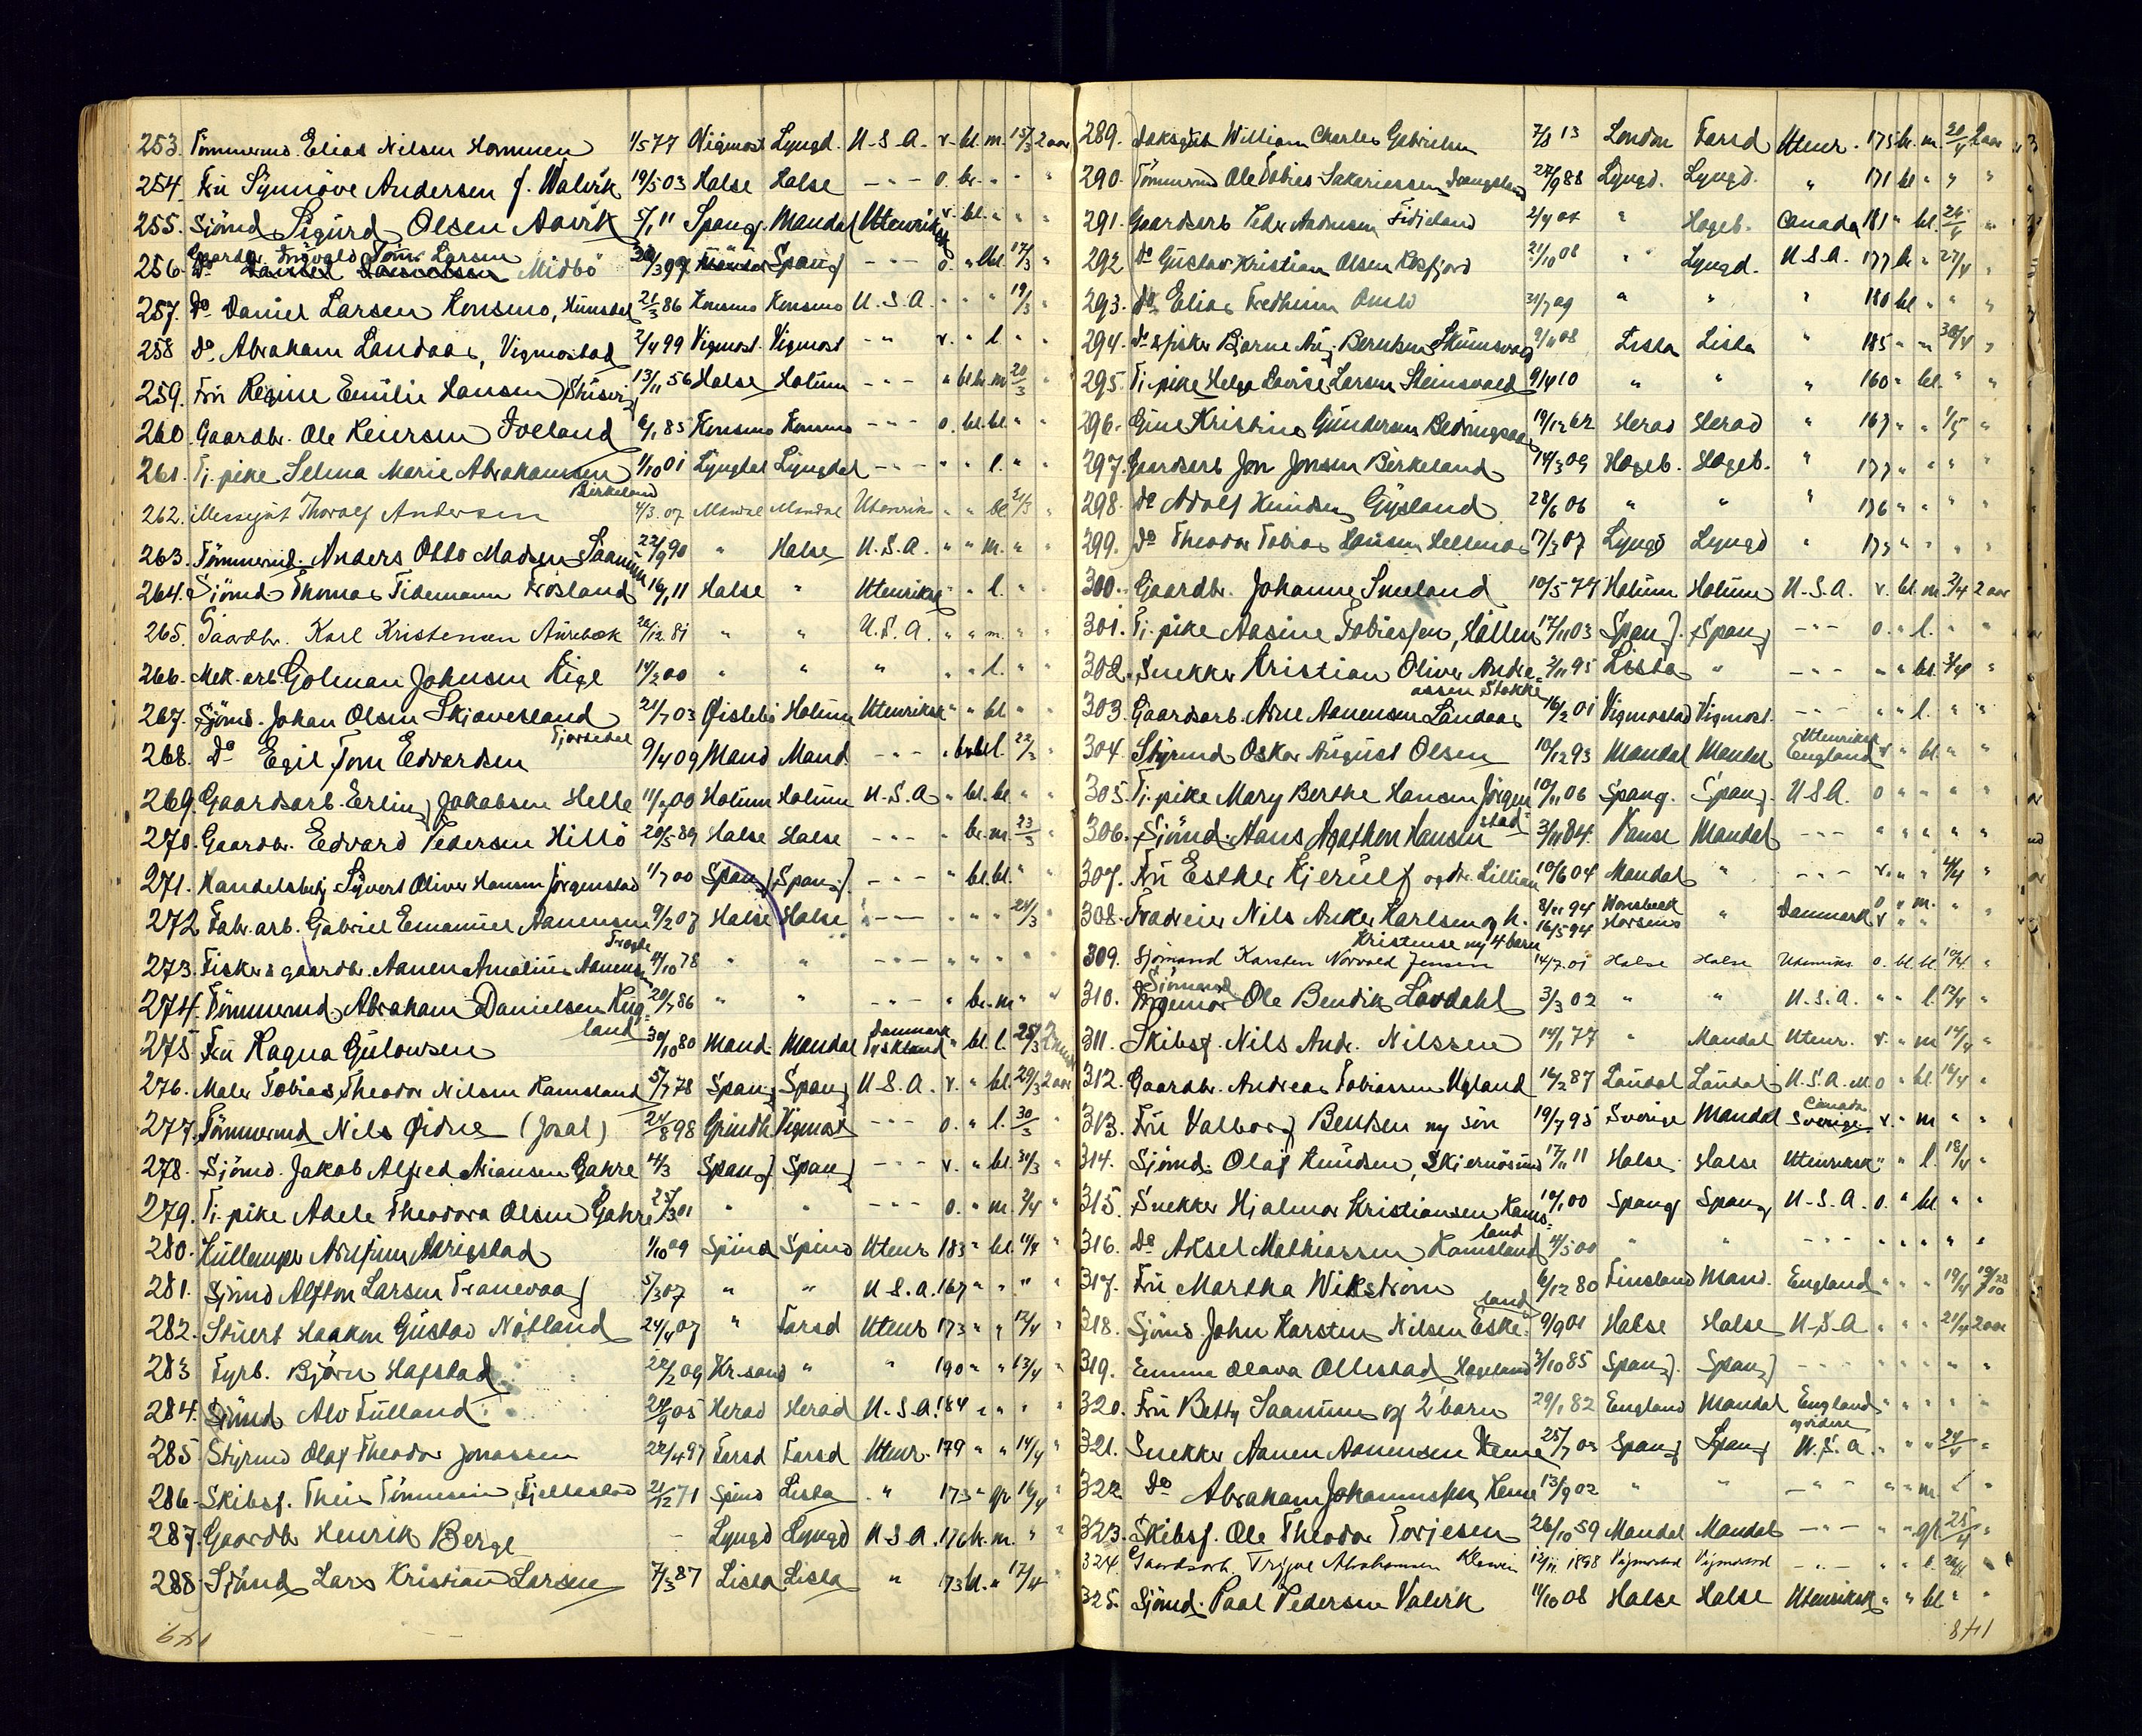 253. Tömmermd. Elias Nilsen Hommen 1/5 77 Vigmost Lyngd. U.S.A. v. bl. m. 15/3 2 aar
254. Fru Synnöve Andersen f. Valvik 19/5 03 Halse Halse - " - o. br. " " "
255. Sjömd Sigurd Olsen Aavik 5/1 11 Spang. Mandal Utenriks v. bl. " " "
Gaardbr. Tom Larsen
256. Midbö Spang - " - o. " bl. 17/3 "
257. Do Daniel Larsen Konsmo, 21/3 86 Konsmo Konsmo U.S.A. " " " 19/3 "
258 Do Abraham Landaas, Vigmostad 2/4 99 Vigmost. Vigmost - " - v. " l. " "
259. Fru Regine Emilie Hansen 13/11 56 Halse Holum - " - " bl. br. m. 20/3 "
260. Gaardbr. Ole Reiersen Ioeland 6/1 85 Konsmo Konsmo - " - o. bl. bl. " "
261. Tj. pike Selma Marie Abrahamsen 1/10 01 Lyngdal Lyngdal - " - " " l. " "
Birkeland
262. Messegut Thoralf Andersen 4/3 07 Mandal Mandal Utenriks " " bl. 21/3 "
263. Tömmermd. Anders Otto Madsen Saanum 22/9 90 " Halse U.S.A. " " m. " "
264. Sjömd Thomas Tidemann Frösland 16/1 11 Halse " Utenriks " " l. " "
265. Gaardbr. Karl Kristensen Aurebæk 26/12 81 " " U.S.A. " " m. " "
266. Mek. arb. Golman Johnsen Eige 14/2 00 " " " " " l. " "
267. Sjömd. Johan Olsen Skjævesland 21/7 03 Øislebö Holum Utenriksk " " bl. " "
268. Do Egil Tom Edvardsen 9/4 09 Mand Mand. - " - " br. bl. l. 22/3 "
269. Gaardsarb. Erling Jakobsen Helle 11/7 00 Holum Holum U.S.A. " bl. bl. " "
270. Gaardbr. Edvard Pedersen Hillö 20/5 89 Halse Halse - " - " br. m. 23/3 "
271. Handelsbetj. Syvert Oliver Hansen Jörgenstad 1/7 00 Spang Spang - " - " bl. bl. " "
272 Fabr. arb. Gabriel Emanuel Aanensen 9/2 07 Halse Halse - " - " " " 24/3 "
273. Fisker & gaardbr. Aanen Amalius Aanensen 4/10 78 " " - " - " " " " "
274. Tömmermd. Abraham Danielsen Hug= 20/7 86 " " - " - " br. m. " "
land
275. Fru Ragna Gulowsen 30/10 80 Mand. Mandal Danmark Tyskland " bl. l. 28/3
276. Maler Tobias Theodor Nilsen Kamsland 5/7 78 Spang Spang U.S.A. v. " bl. 29/3 2 aar
277. Tömmermd Nils Øidne (Josal) 24/8 98 Grindh. Vigmost - " - o. " l. 30/3 "
278. Sjömd. Jakob Alfred Ariansen Gahre 14/3 Spang Spang - " - v. " bl. 31/3 "
279. Tj. pike Adele Theodora Olsen Gahre 25/3 01 " " - " - o. " m. 2/4 "
280. Kullemper Arnfinn Aarigstad 1/10 09 Spind Spind Utenr 183 " bl. 11/4 "
281. Sjömd Alfton Larsen Tranevaag 5/3 07 " " U.S.A. 167 " " " "
282. Stuert Haakon Gustav Nötland 24/4 07 " Farsd Utenr 173 " " 12/4 "
283 Fyrb. Björn Hafstad 22/2 09 Kr.sand " " 190 " " 13/4 "
284. Sjömd Alv Fulland 28/9 05 Herad Herad U.S.A. 184 " " " "
285. Styrmd Olaf Theodor Jonassen 22/4 97 Farsd Farsd Utenr. 179 " " 14/4 "
286. Skibsf. Theis Tönnesin, Fjellestad 21/12 71 Spind Lista " 173 " gr 16/4 "
287. Gaardbr Henrik Berge - Lyngd Lyngd U.S.A. 176 br. m. " "
288. Sjömd Lars Kristian Larsen 7/3 87 Lista Lista " 173 bl. " 17/4 "
289. Daksgut William Charles Gabrielsen 7/8 13 London Farsd Utenr. 175 br. m. 20/4 2 aar
290. Tömmermd Ole Tobies Sakariassen 27/9 88 Lyngd. Lyngd. " 171 bl " " "
291. Gaardsarb Peder Andersen Fidjeland 2/4 04 " Hægeb. Canada 181 " bl. 26/4 "
292 Do Gustav Kristian Olsen Rosfjord 21/10 08 " Lyngd. U.S.A. 177 br " 27/4 "
293. Do Elias Fredheim Omli 31/7 09 " " " 180 bl " " "
294. Do & fisker Bjarne Aug. Berntsen 9/4 08 Lista Lista " 185 " " 30/4 "
295. Tj. pike Helga Lovise Larsen Steinsvold 9/4 10 " " " 160 " bl. " "
296. Gine Kristine Gundersen 19/12 62 Herad Herad " 167 " " 1/5 "
297. Gaardsarb Jon Jonsen Birkeland 14/3 09 Hægeb. Hægeb. " 177 " " " "
298. Do Adolf Knudsen Gysland 28/6 06 " " " 176 " " " "
299. Do Theodor Tobias Hansen 17/3 07 Lyngd Lyngd " 175 " " " "
300. Gaardbr. Johannes Smeland 10/5 74 Holum Holum U.S.A. v. bl. m. 2/4 2 aar
301. Tj. pike Aasine Tobiassen, Hallen 17/11 03 Spang. Spang - " - o. " l. " "
302. Snekker Kristian Oliver Andre= 2/11 95 Lista " - " - " " bl. 3/4 "
assen Stokke
303. Gaardsarb. Arne Aanensen Landaas 16/2 01 Vigmostad Vigmost. - " - " " l. " "
304. Styrmd Oskar August Olsen 10/12 93 Mandal Mandal Utenriks England v. " bl. " "
305. Tj. pike Mary Berthe Hansen Jörgen= 10/11 06 Spang. Spang. U.S.A. o " " " "
stad
306. Sjömd. Hans Agathon Hansen 3/11 84. Vanse Mandal - " - " " " " "
307. Fru Esther Kjerulf og dtr. Lillian 10/6 04 Mandal " - " - v. " " 4/4 "
308. Nils Anker Karlsen og h. 8/11 94 Horsens " Danmark o " m. " "
Kristense og 4 barn 16/5 94
309. Sjömand Karsten Norvald Jensen 14/7 01 Halse Halse Utenriks o. bl. bl. 10/4 "
Sjömand
310. Ole Bendik Lövdahl 3/3 02 " " U.S.A. " " l. 12/4 "
311. Skibsf. Nils Andr. Nilssen 14/1 77 " Mandal Utenr. v. " m 14/4 "
312. Gaardbr. Andreas Tobiassen Ugland 16/2 87 Laudal Laudal U.S.A. o " bl. 16/4 "
313. Fru Valborg Bentsen og sön 19/7 95 Sverige Mandal Canada Sverige v. " m " "
314. Sjömd. Olaf Knudsen, Skjernösund 17/11 11 Halse Halse Utenriksk " " l. 18/4 "
315. Snekker Hjalmar Kristiansen Kams= 10/1 00 Spang Spang U.S.A. o. " bl. " "
land
316. Do Aksel Mathiassen Kamsland 4/5 00 " " - " - " " " " "
317. Fru Martha Wikström 6/12 80 Finsland Mand. England " " " 19/4
318. Sjömd. John Karsten Nilsen Eske= land 9/9 01 Halse Halse U.S.A " " " 21/4 2 aar
319. Emma Olava Ollestad Hageland 2/10 85 Spang. Spang - " - " " " " "
320. Fru Betty Saanum og 2 barn 29/1 82 England Mandal England " " " " "
og videre
321. Snekker Aanen Aanensen Heme 25/7 03 Spang Spang U.S.A. " " " 24/4 "
322 Do Abraham Johannessen Heme 13/9 02 " " - " - " " m " "
323. Skibsf. Ole Theodor Torjesen 26/10 59 Mandal Mandal - " - " " gr. 25/4 "
324. Gaardsarb. Trygve Abrahamsen 12/11 1898 Vigmostad Vigmostad - " - " " l. 26/4 "
325. Sjömd. Paal Pedersen Valvik 14/10 08 Halse Halse Utenriksk " " bl " "